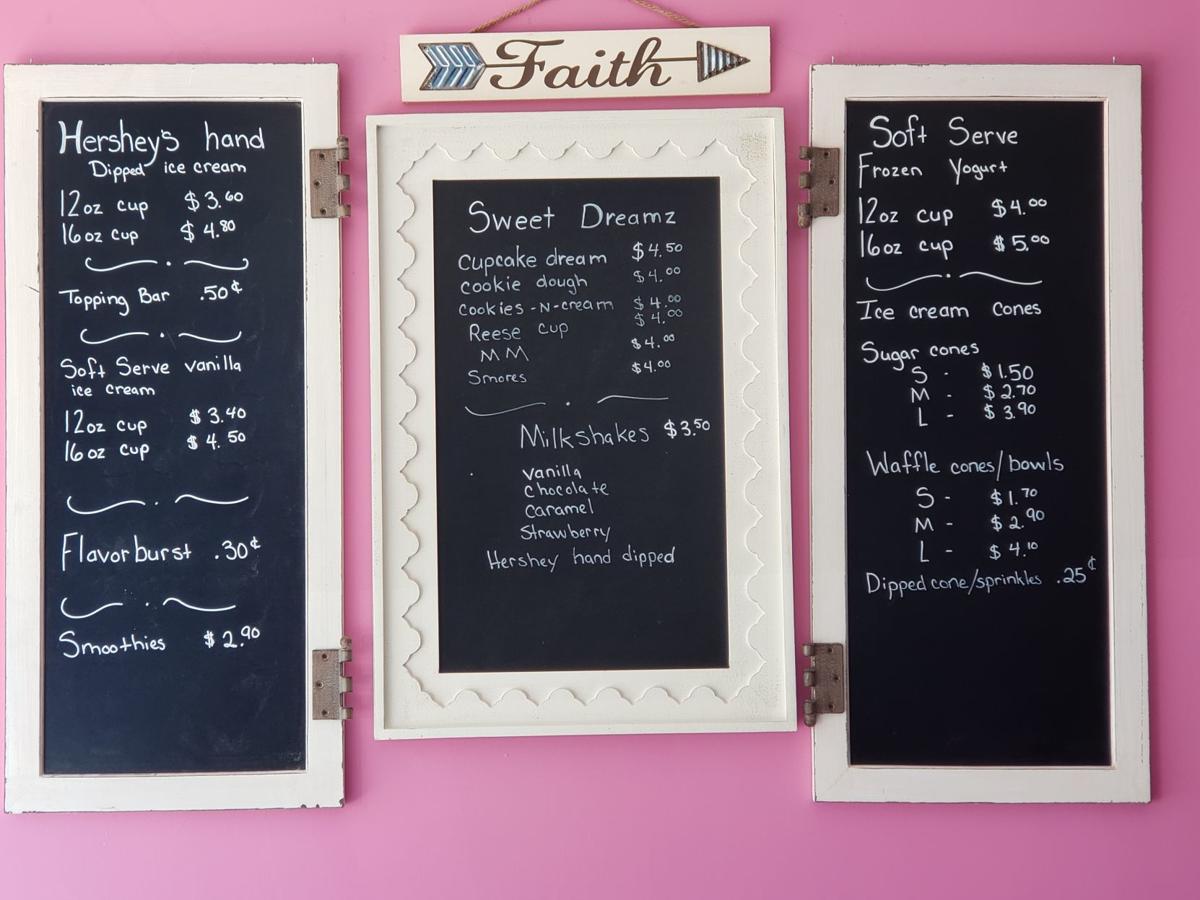 Faith
Hershey's hand
Dipped ice cream
12oz cup $3.60
16oz cup $4.80
Topping Bar .50¢
Soft Serve vanilla
ice cream
12oz cup $3.40
16oz cup $4.50
Flavorburst .30¢
Smoothies $2.90
Sweet Dreamz
Cupcake dream $4.50
cookie dough $4.00
cookies-N-cream $4.00
Reese cup $4.00
MM $4.00
Smores $4.00
Milkshakes $3.50
vanilla
chocolate
caramel
Strawberry
Hershey hand dipped
Soft Serve
Frozen Yogurt
12oz cup $4.00
16oz cup $5.00
Ice cream cones
Sugar cones
S - $1.50
M - $2.70
L - $3.90
Waffle cones/bowls
S - $1.70
M - $2.90
L - $4.10
Dipped cone/sprinkles .25¢